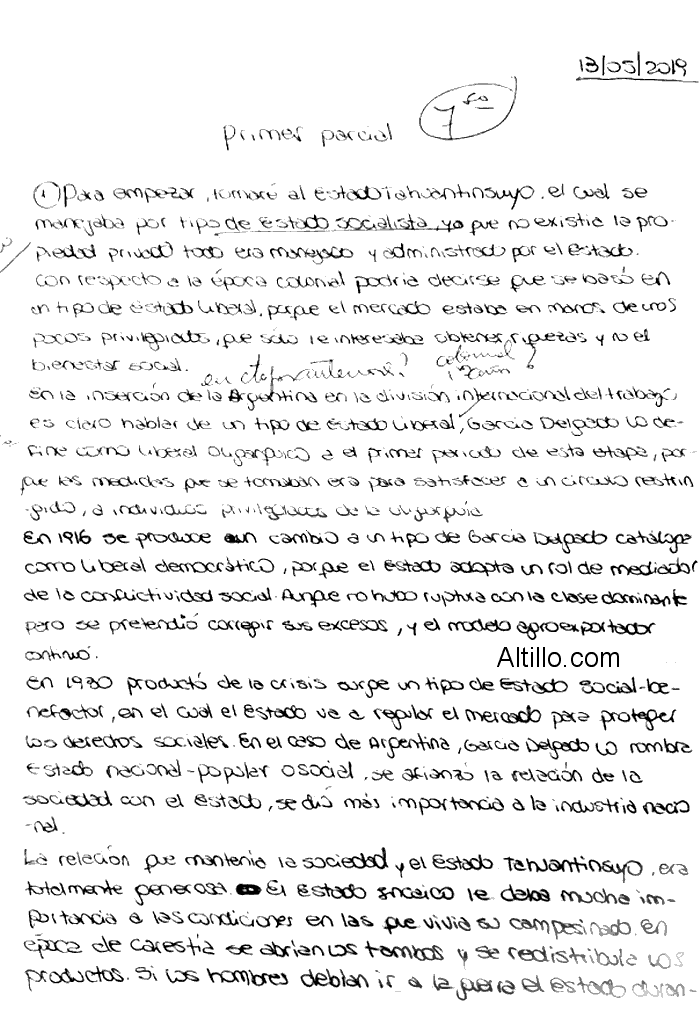 13/05/2019
Primer parcial
7
① Para empezar, tomaré al Estado Tahuantinsuyo, el cual se
manejaba por tipo de Estado socialista, ya que no existía la pro-
piedad privada todo era manejado y administrado por el Estado.
Con respecto a la época colonial podría decirse que se basó en
un tipo de Estado Liberal, porque el mercado estaba en manos de unos
pocos privilegiados, que sólo le interesaba obtener riquezas y no el
bienestar social.
colonial?
En la inserción de la Argentina en la división internacional del trabajo,
es claro hablar de un tipo de Estado Liberal, García Delgado lo de-
fine como Liberal Oligárquico a el primer periodo de esta etapa, por-
que las medidas que se tomaban era para satisfacer a un circulo restrin
-gido, a individuos privilegiados de la oligarquía
En 1916 se produce un cambio a un tipo de García Delgado cataloga
como Liberal democrático, porque el Estado adopta un rol de mediador
de la conflictividad social. Aunque no hubo ruptura con la clase dominante
pero se pretendió corregir sus excesos, y el modelo agroexportador
continuó.
Altillo.com
En 1930 productó de la crisis surge un tipo de Estado Social-be-
nefactor, en el cual el Estado va a regular el mercado para proteger
los derechos sociales. En el caso de Argentina, García Delgado lo nombra
Estado nacional-popular o social, se afianzó la relación de la
sociedad con el Estado, se dió más importancia a la industria nacio
-nal.
La relación que mantenía la sociedad y el Estado Tahuantinsuyo, era
totalmente generosa. El Estado incaico le daba mucha im-
portancia a las condiciones en las que vivía su campesinado. En
época de carestía se abrían los tambos y se redistribuía los
productos. Si los hombres debían ir a la guerra el Estado duran-